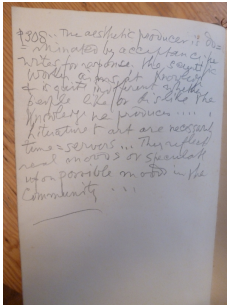 The aesthetic producer is do=
=minated by acceptance, he
writes for response. The scientific
worker aims at knowledge
& is quite indifferent whether
people like or dislike the
knowledge he produces ....
Literature & art are necessarily
time=servers ... They reflect
real moods or speculate
upon possible moods in the
Community ...